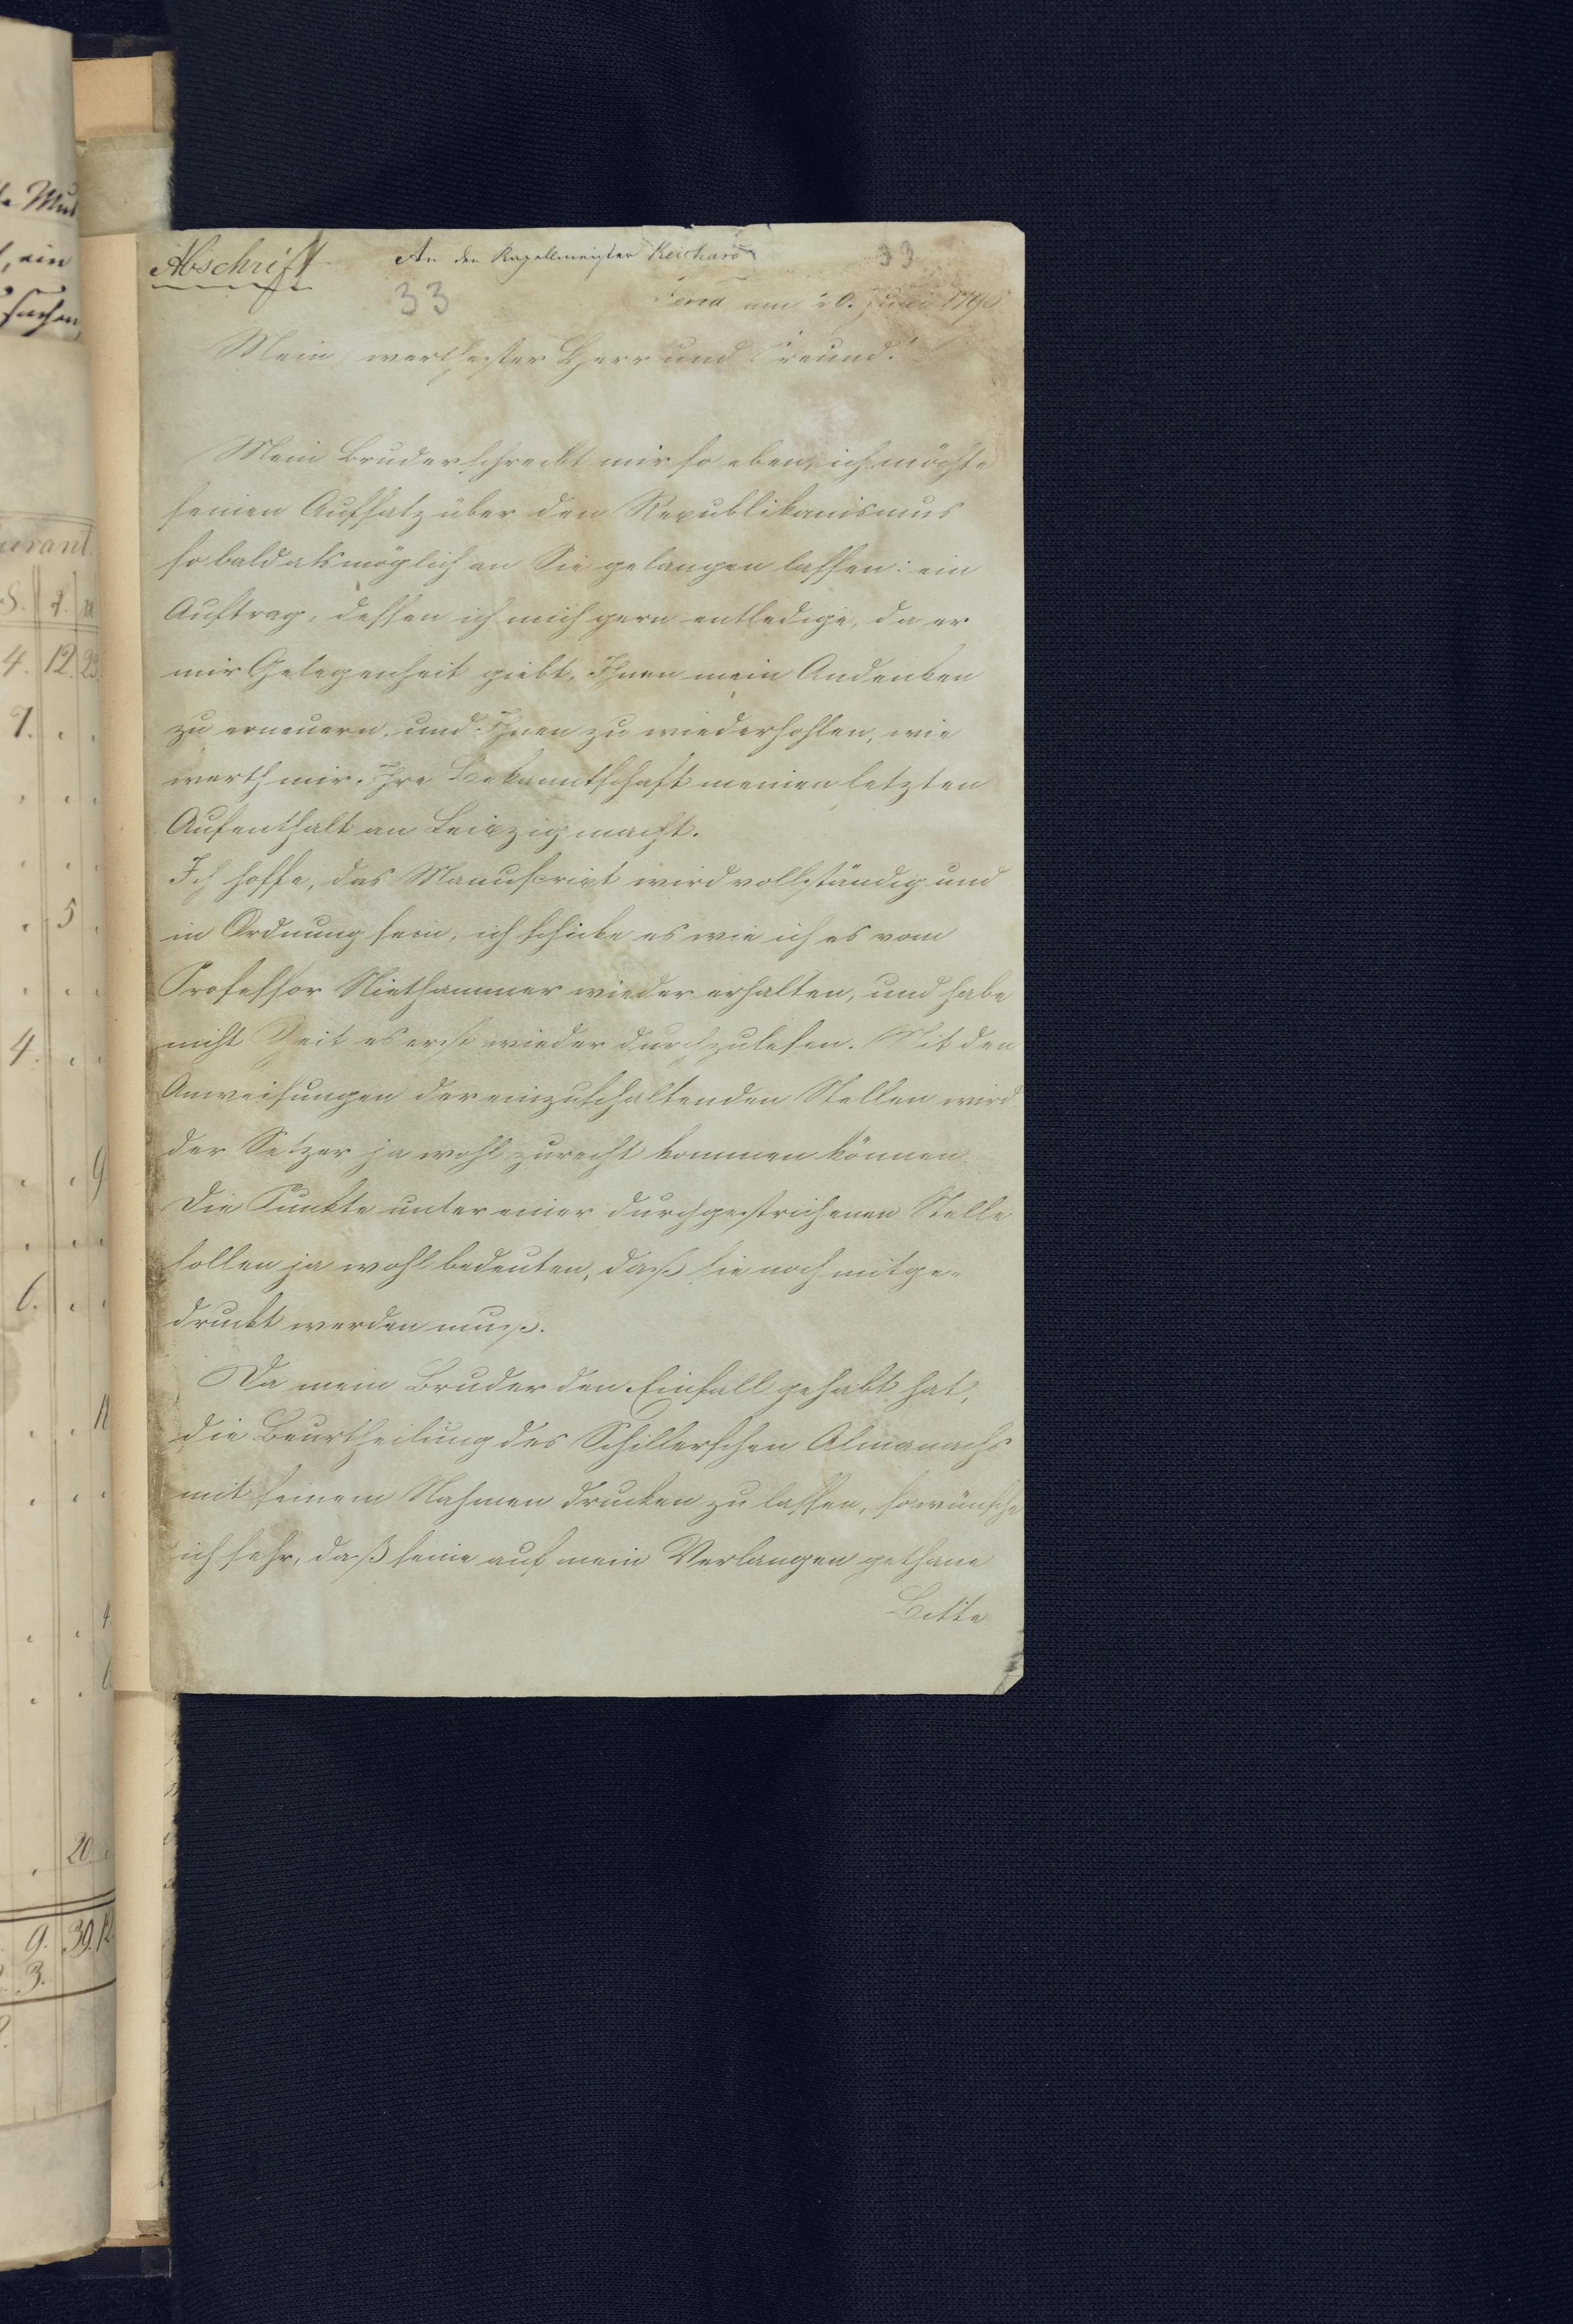 Abschrift An den Kapellmeister Reichard 33
33 Jena am 20. Juni 1796
Mein werthester Herr und Freund!
Mein Bruder schreibt mir so eben, ich möchte
seinen Aufsatz über den Republikanismus
so bald als möglich an Sie gelangen lassen: ein
Auftrag, dessen ich mich gern entledige, da er
mir Gelegenheit giebt, Ihnen mein Andenken
zu erneuern, und Ihnen zu wiederhohlen, wie
werth mir Ihre Bekanntschaft meinen letzten
Aufenthalt an Leipzig macht.
Ich hoffe, das Manuscript wird vollständig und
in Ordnung sein, ich schicke es wie ich es vom
Professor Niethammer wieder erhalten, und habe
nicht Zeit es erst wieder durchzulesen. Mit den
Anweisungen der einzuschaltenden Stellen wird
der Setzer ja wohl zurecht kommen können.
Die Punkte unter einer durchgestrichenen Stelle
sollen ja wohl bedeuten, daß sie noch mitge-
druckt werden muß.
Da mein Bruder den Einfall gehabt hat,
die Beurtheilung des Schillerschen Almanachs
mit seinem Nahmen drucken zu lassen, so wünsche
ich sehr, daß seine auf mein Verlangen gethane
Bitte